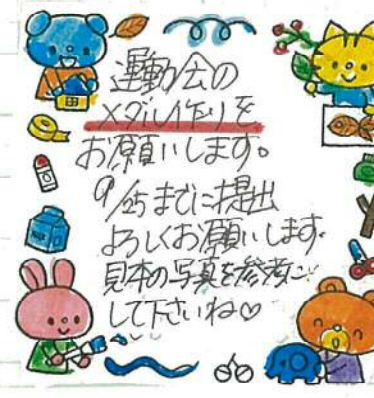 運動会の
メダル作りを
お願いします。
9/25までに提出
よろしくお願いします。
見本の写真を参考に
して下さいね♡